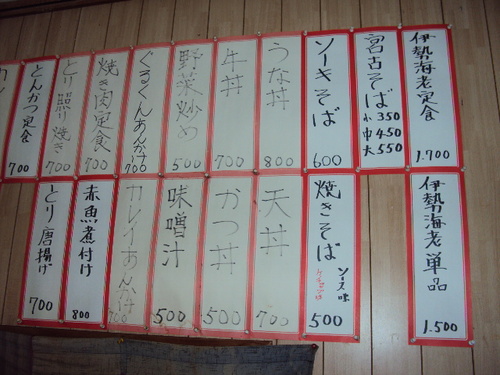 伊勢海老定食
1.700
宮古そば
小 350
中 450
大 550
ソーキそば
600
うな丼
800
牛丼
700
野菜炒め
500
ぐるくんあんかけ
700
焼き肉定食
700
とり照り焼き
700
とんかつ定食
700
伊勢海老単品
1.500
焼きそば
ソース味
ケチャップ味
500
天丼
700
かつ丼
500
味噌汁
500
カレイあんかけ
700
赤魚煮付け
800
とり唐揚げ
700